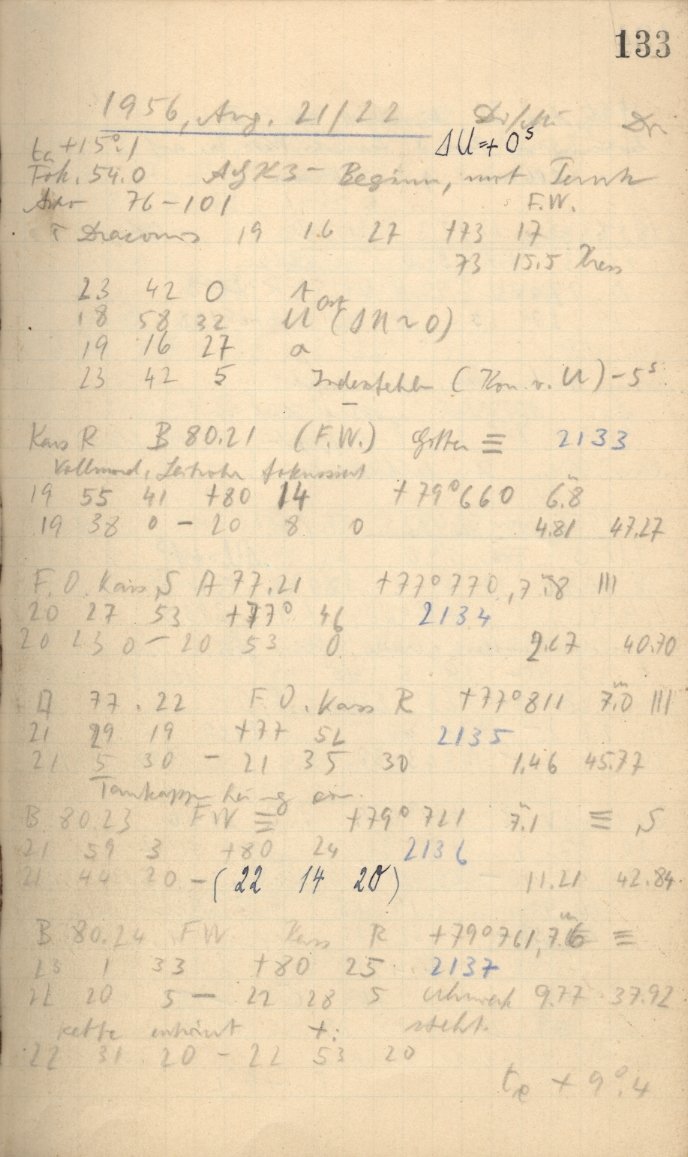 133
1956, Aug. 21/22 Dr
ta +15°,1 ΔU=+0s
Fok. 54.0 AGK3 - Beginn, mit
76-101 F.W.
τ Draconis 19 16 27 +73 17
73 15.5
23 42 0 t Ort
18 58 32 U (ΔU ~ 0)
19 16 27 α
23 42 5 Indexfehler (Kon. v. U) -5s
Kass R B 80.21 (F.W.) Gitter ≡ 2133
Vollmond, Leitrohr fokussiert
19 55 41 +80 14 +79°660 6.8
19 38 0 - 20 8 0 4.81 47.27
F. O. Kass S A 77.21 +77°770, 7.m8 III
20 27 53 +77° 46 2134
20 23 0 - 20 53 0 2.67 40.70
A 77.22 F O. Kass R +77°811 7.m0 III
21 29 19 +77 52 2135
21 5 30 - 21 35 30 1.46 45.77
Taukappe
B 80.23 FW ≡ +79°721 7.m1 ≡ S
21 59 3 +80 24 2136
21 44 20 - (22 14 20) 11.21 42.84
B 80.24 FW Kass R +79°761, 7.m6 ≡
23 1 33 +80 25 2137
22 20 5 - 22 28 5 Uhrwerk 9.77 37.92
steht.
22 31 20 - 22 53 20
te +9°.4